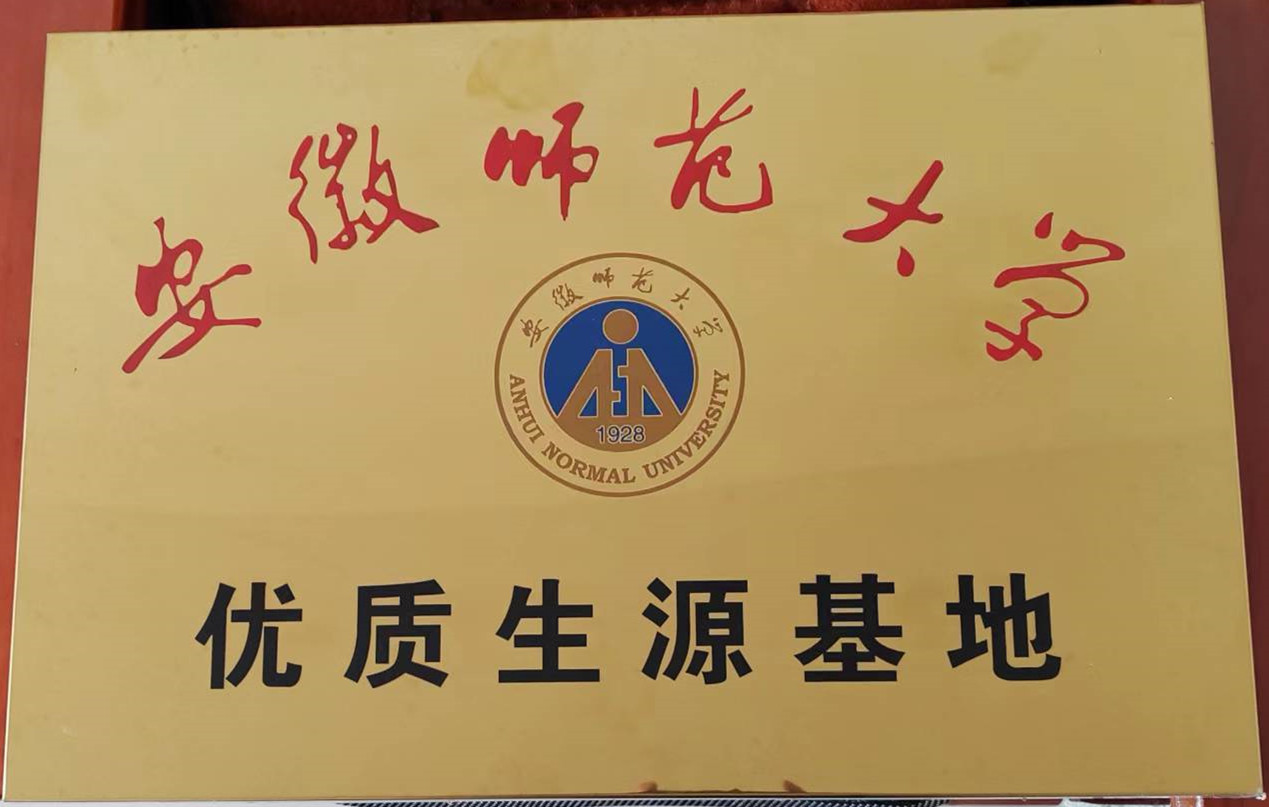 安徽师范大学
安徽师范大学
1928
ANHUI NORMAL UNIVERSITY
优质生源基地